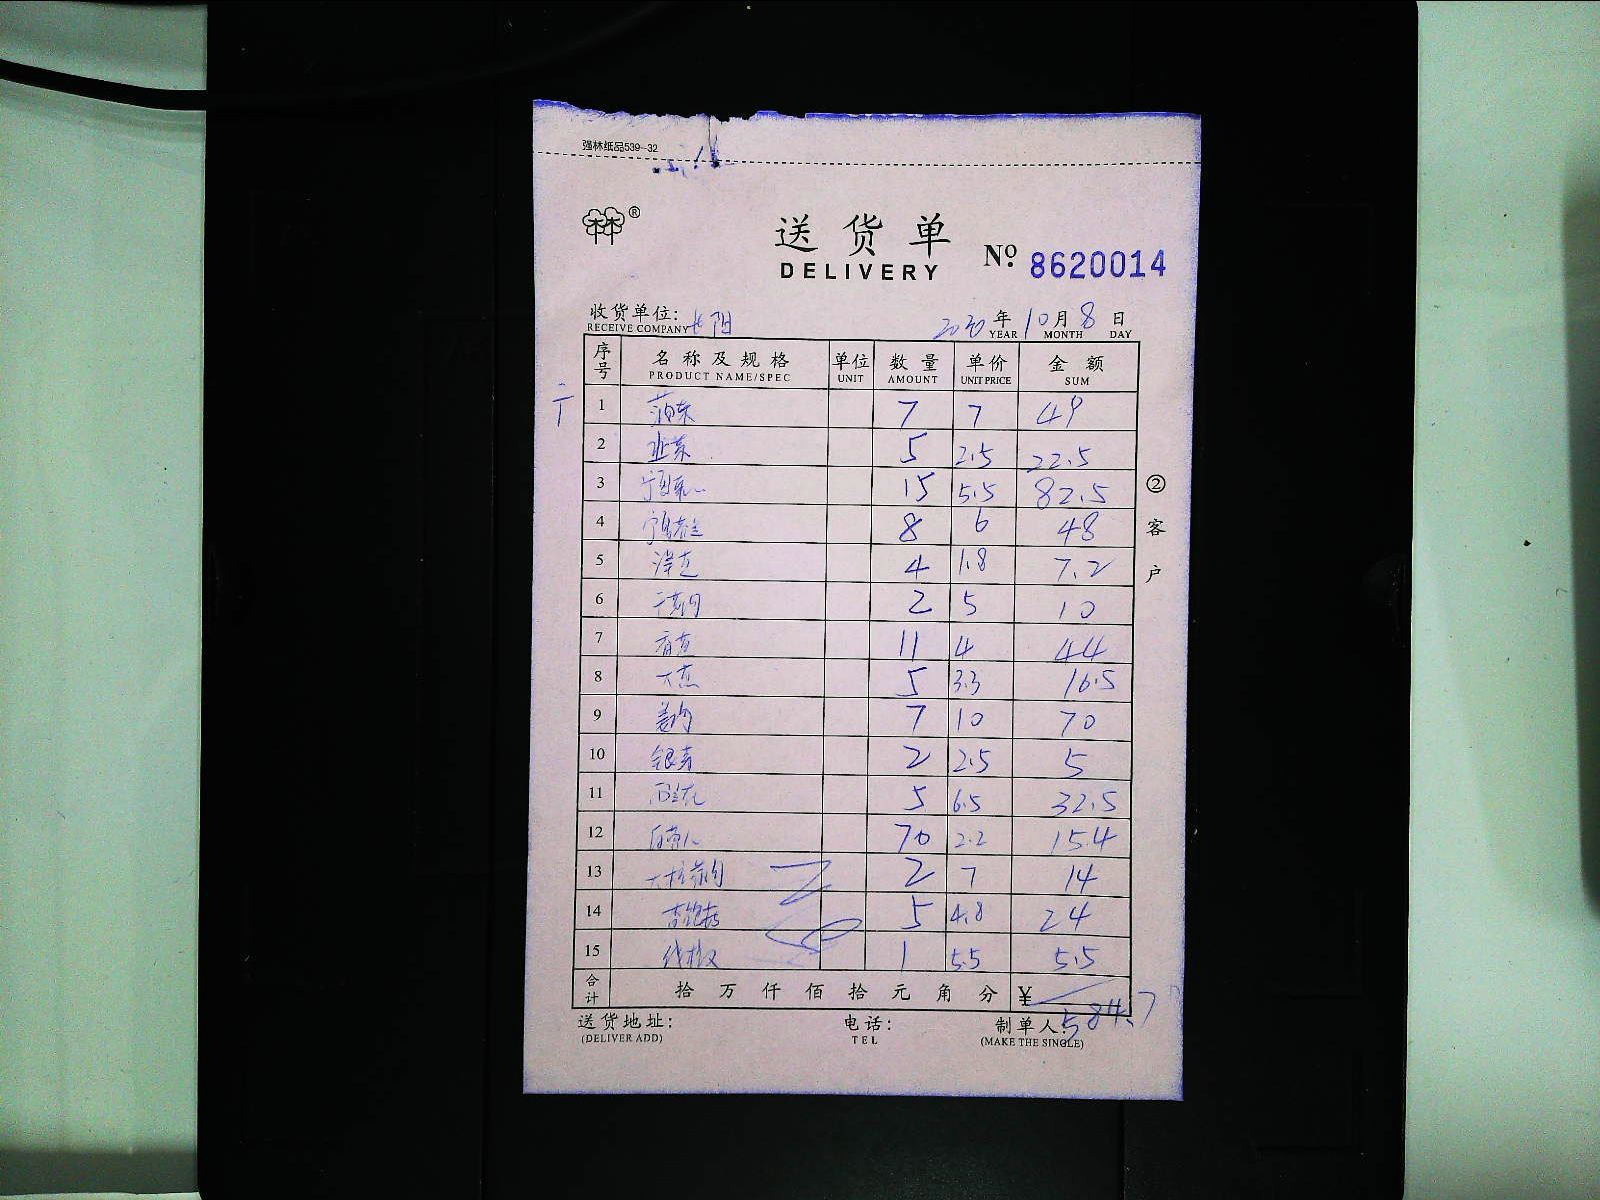 强林纸品539-32
®
送货单
DELIVERY
Nº. 8620014
收货单位: 2020年10月8日
RECEIVE COMPANY YEAR MONTH DAY
序号 名称及规格 单位 数量 单价 金额
PRODUCT NAME/SPEC UNIT AMOUNT UNIT PRICE SUM
1 7 7 49
2 韭菜 5 2.5 22.5
3 15 5.5 82.5
4 8 6 48
5 4 1.8 7.2
6 2 5 10
7 11 4 44
8 5 3.3 16.5
9 7 10 70
10 银芽 2 2.5 5
11 西兰花 5 6.5 32.5
12 70 2.2 15.4
13 2 7 14
14 杏鲍菇 5 4.8 24
15 1 5.5 5.5
合计 拾万仟佰拾元角分 ¥ 584.7
②客户
送货地址: 电话: 制单人:
(DELIVER ADD) TEL (MAKE THE SINGLE)